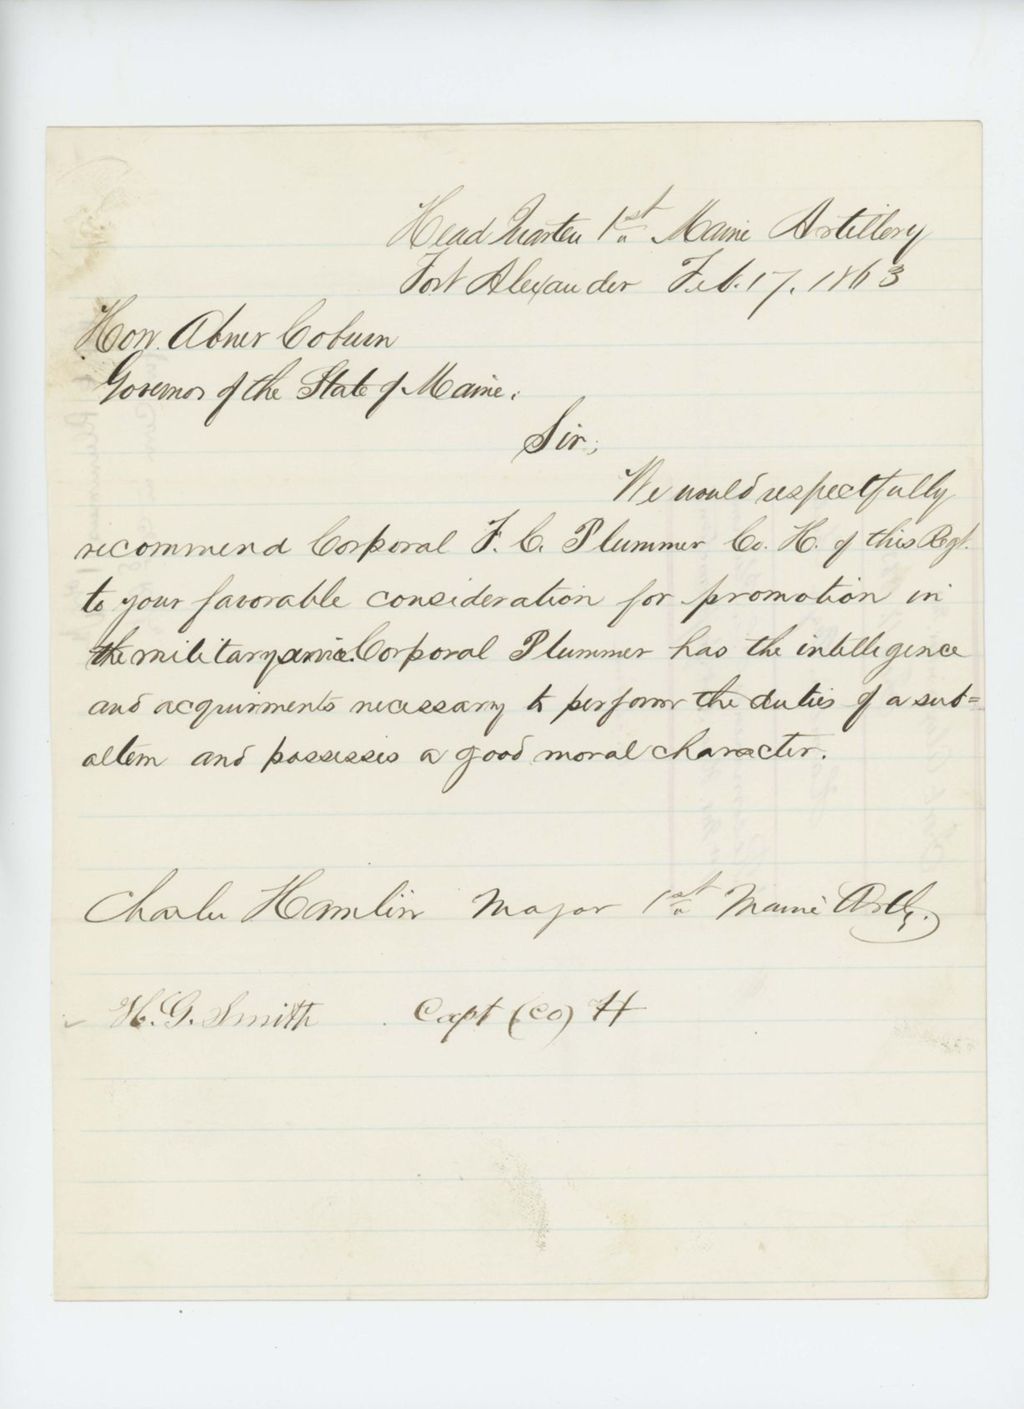 Head Quarters 1st Maine Artillery
Fort Alexander Feb. 17, 1863
Hon. Abner Coburn
Governor of the State of Maine,
Sir;
We would respectfully
recommend Corporal F. C. Plummer Co. H. of this Regt.
to your favorable consideration for promotion in
the military service. Corporal Plummer has the intelligence
and acquirments necessary to perform the duties of a sub=
altern and possesses a good moral character.
Charles Hamlin Major 1st Maine Arty.
H. G. Smith Capt (Co) H